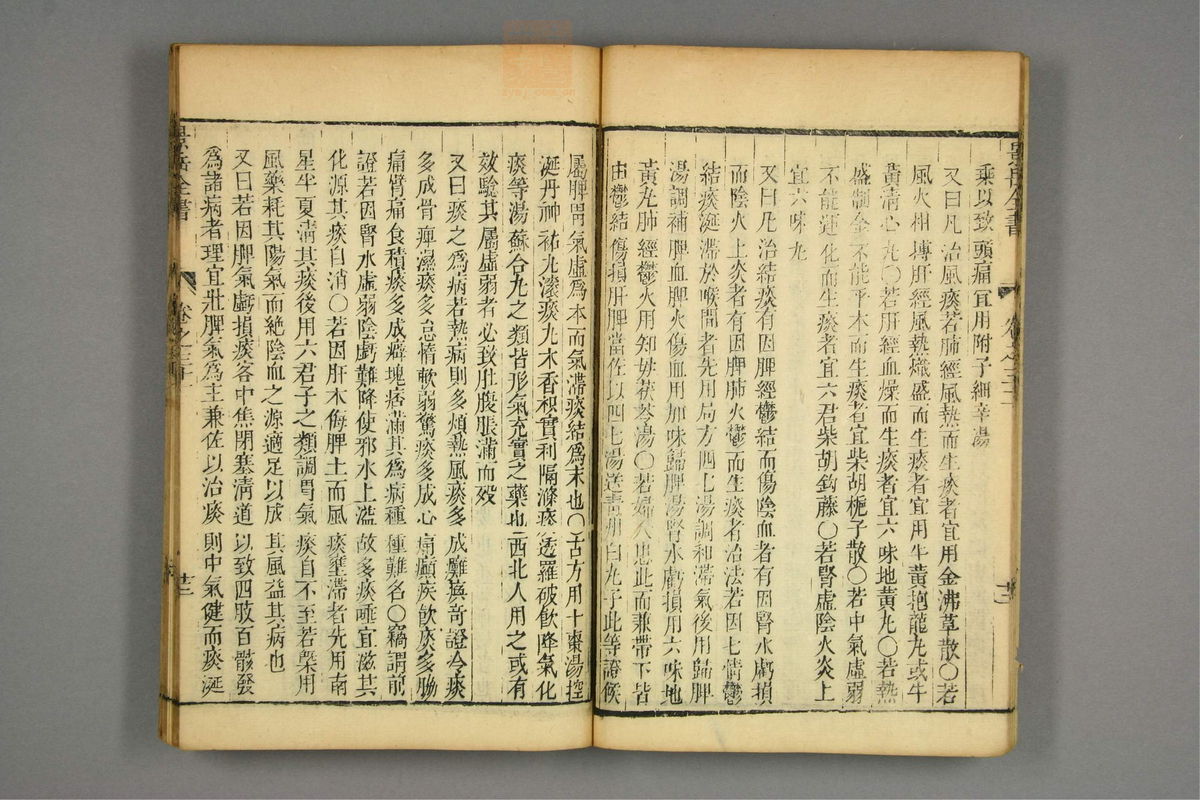 景岳全書
卷之三十一
乘以致頭痛宜用附子細辛湯
又曰凡治風痰若肺經風熱而生痰者宜用金沸草散〇若
風火相摶肝經風熱熾盛而生痰者宜用牛黃抱龍丸或牛
黃清心丸〇若肝經血燥而生痰者宜六味地黃丸〇若熱
盛制金不能平木而生痰者宜柴胡梔子散〇若中氣虛弱
不能運化而生痰者宜六君柴胡鈎藤〇若腎虛陰火炎上
宜六味丸
又曰凡治結痰有因脾經鬱結而傷陰血者有因腎水虧損
而陰火上炎者有因脾肺火鬱而生痰者治法若因七情鬱
結痰涎滯於喉間者先用局方四七湯調和滯氣後用歸脾
湯調補脾血脾火傷血用加味歸脾湯腎水虧損用六味地
黃丸肺經鬱火用知母茯苓湯〇若婦人患此而兼帶下皆
由鬱結傷損肝脾當佐以四七湯送青州白丸子此等證候
屬脾胃氣虛爲本而氣滯痰結爲末也〇古方用十棗湯控
涎丹神祐丸滾痰丸木香枳實利隔滌痰透羅破飲降氣化
痰等湯蘇合丸之類皆形氣充實之藥也西北人用之或有
效驗其屬虛弱者必致肚腹脹滿而歿
又曰痰之爲病若熱病則多煩熱風痰多成癱瘓奇證冷痰
多成骨痺濕痰多怠惰軟弱驚痰多成心痛癲疾飲痰多脇
痛臂痛食積痰多成癖塊痞滿其爲病種種難名〇竊謂前
證若因腎水虛弱陰虧難降使邪水上溢故多痰唾宜滋其
化源其痰自消〇若因肝木侮脾土而風痰壅滯者先用南
星半夏清其痰後用六君子之類調胃氣痰自不至若槩用
風藥耗其陽氣而絕陰血之源適足以成其風益其病也
又曰若因脾氣虧損痰客中焦閉塞清道以致四肢百骸發
爲諸病者理宜壯脾氣爲主兼佐以治痰則中氣健而痰涎
景岳全書
卷之三十一